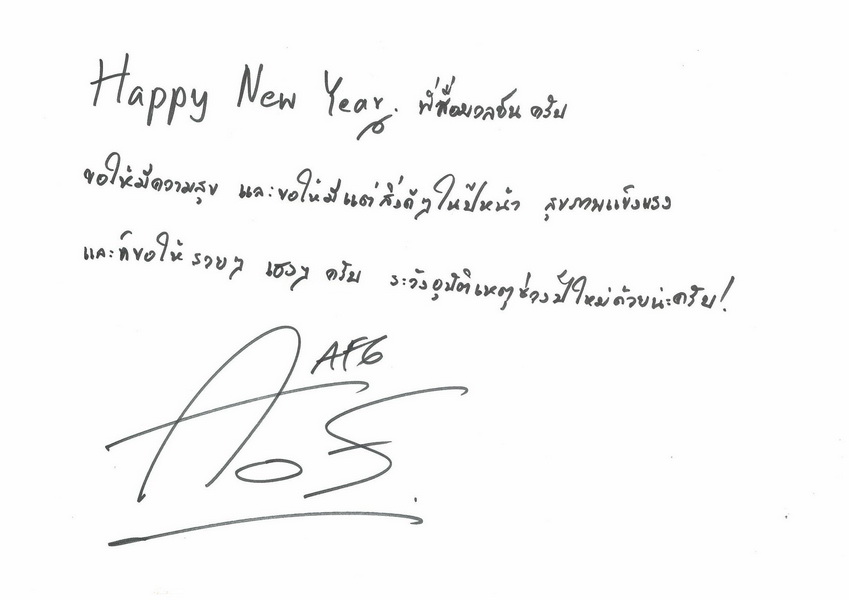 Happy New Year. พี่สื่อมวลชน ครับ
ขอให้มีความสุข และขอให้มีแต่สิ่งดีๆ ในปีหน้า สุขภาพแข็งแรง
และก็ขอให้ รวยๆ เฮงๆ ครับ ระวังอุบัติเหตุช่วงปีใหม่ด้วยน่ะครับ!
AF6